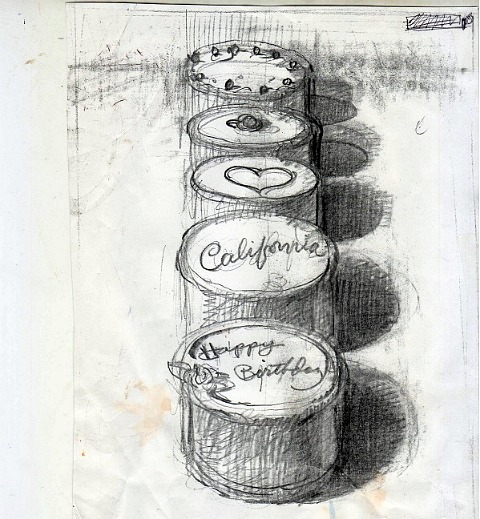 California
Happy
Birthday